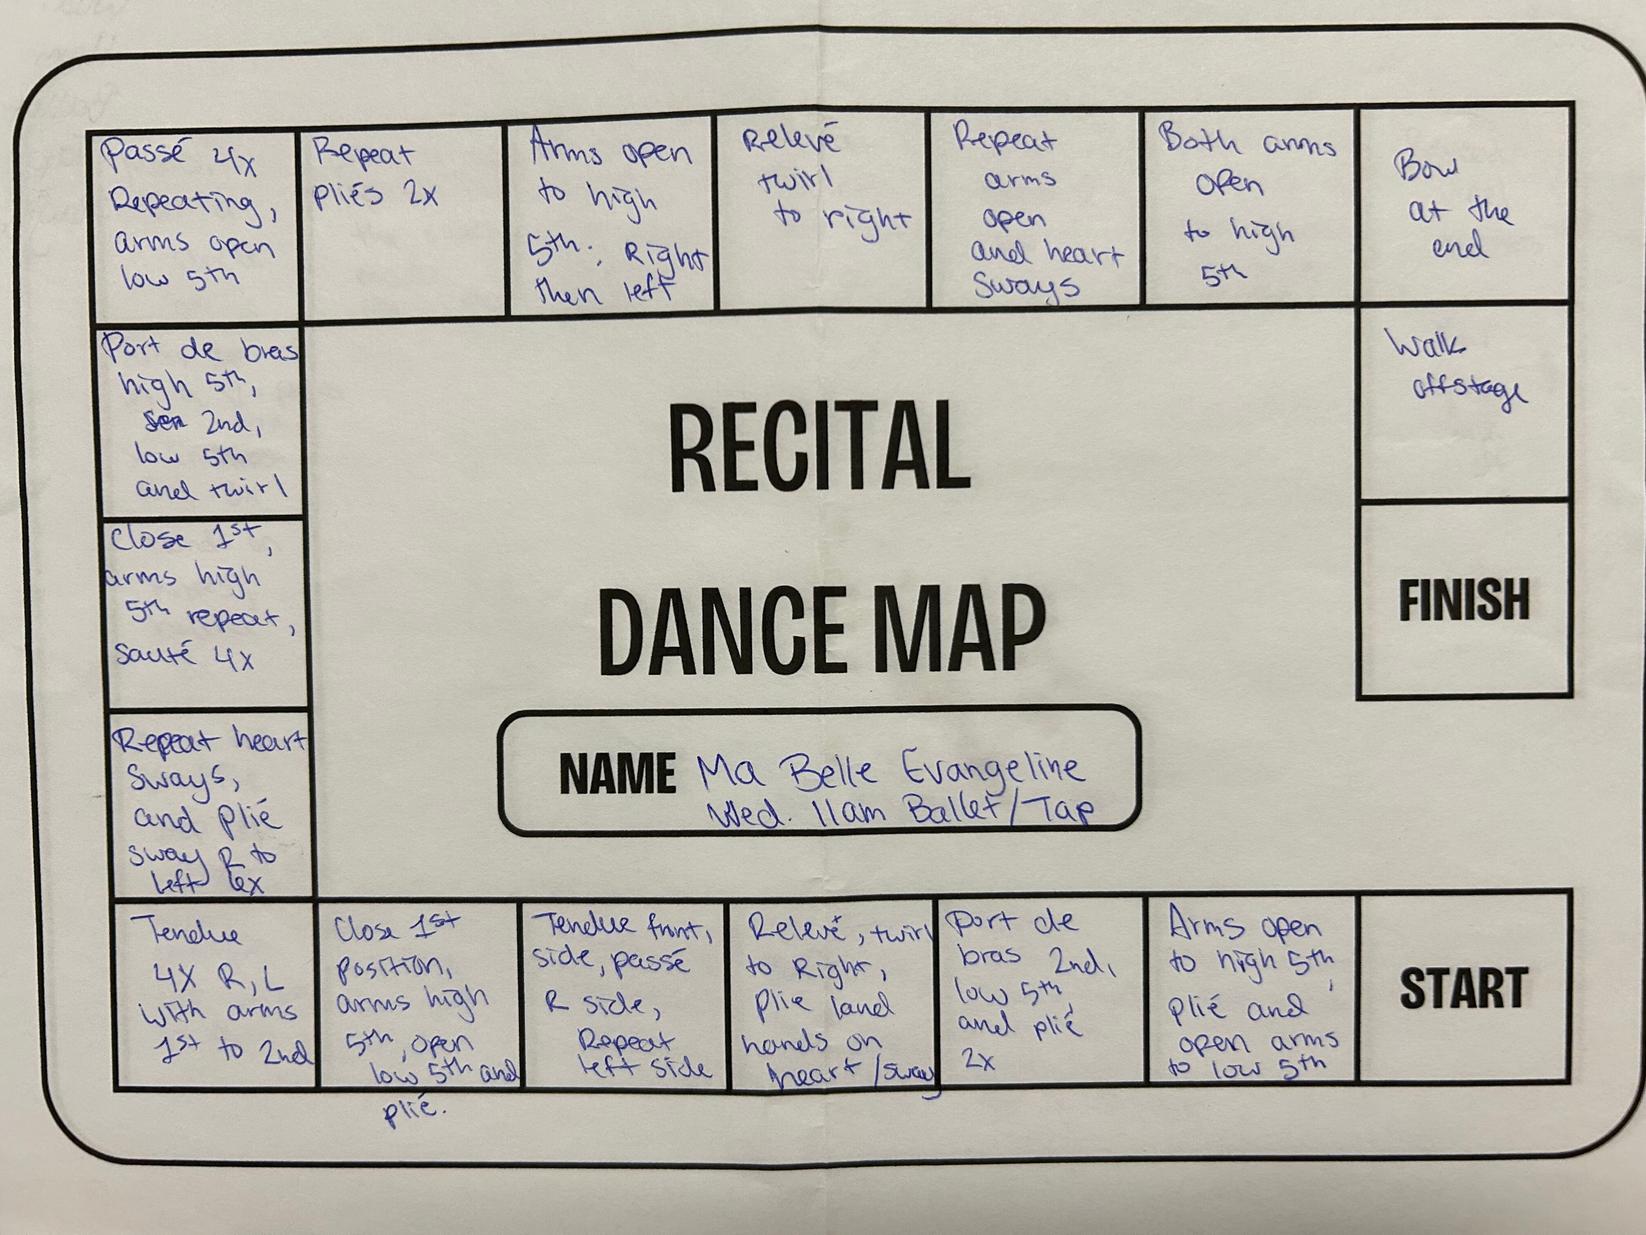 Passé 4x
Repeating,
arms open
low 5th
Repeat
pliés 2x
Arms open
to high
5th, Right
then left
Relevé
twirl
to right
Repeat
arms
open
and heart
Sways
Both arms
open
to high
5th
Bow
at the
end
Port de bras
high 5th,
2nd,
low 5th
and twirl
Walk
offstage
RECITAL
DANCE MAP
Close 1st,
arms high
5th repeat,
sauté 4x
FINISH
Repeat heart
Sways,
and plié
sway R to
left 6x
NAME Ma Belle Evangeline
Wed. 11am Ballet/Tap
Tendue
4X R, L
with arms
1st to 2nd
Close 1st
position,
arms high
5th, open
low 5th and
plié.
Tendue front,
side, passé
R side,
Repeat
left side
Relevé, twirl
to Right,
plie land
hands on
heart/sway
Port de
bras 2nd,
low 5th,
and plié
2x
Arms open
to high 5th,
plié and
open arms
to low 5th
START